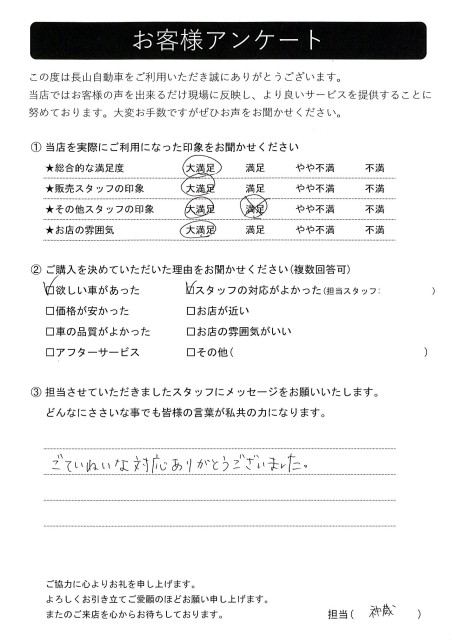 お客様アンケート
この度は長山自動車をご利用いただき誠にありがとうございます。
当店ではお客様の声を出来るだけ現場に反映し、より良いサービスを提供することに
努めております。大変お手数ですがぜひお声をお聞かせください。
① 当店を実際にご利用になった印象をお聞かせください
★総合的な満足度 大満足 満足 やや不満 不満
★販売スタッフの印象 大満足 満足 やや不満 不満
★その他スタッフの印象 大満足 満足 やや不満 不満
★お店の雰囲気 大満足 満足 やや不満 不満
② ご購入を決めていただいた理由をお聞かせください(複数回答可)
☑欲しい車があった ☑スタッフの対応がよかった(担当スタッフ: )
□価格が安かった □お店が近い
□車の品質がよかった □お店の雰囲気がいい
□アフターサービス □その他( )
③ 担当させていただきましたスタッフにメッセージをお願いいたします。
どんなにささいな事でも皆様の言葉が私共の力になります。
ごていねいな対応ありがとうございました。
ご協力に心よりお礼を申し上げます。
よろしくお引き立てご愛顧のほどお願い申し上げます。
またのご来店を心からお待ちしております。 担当( )